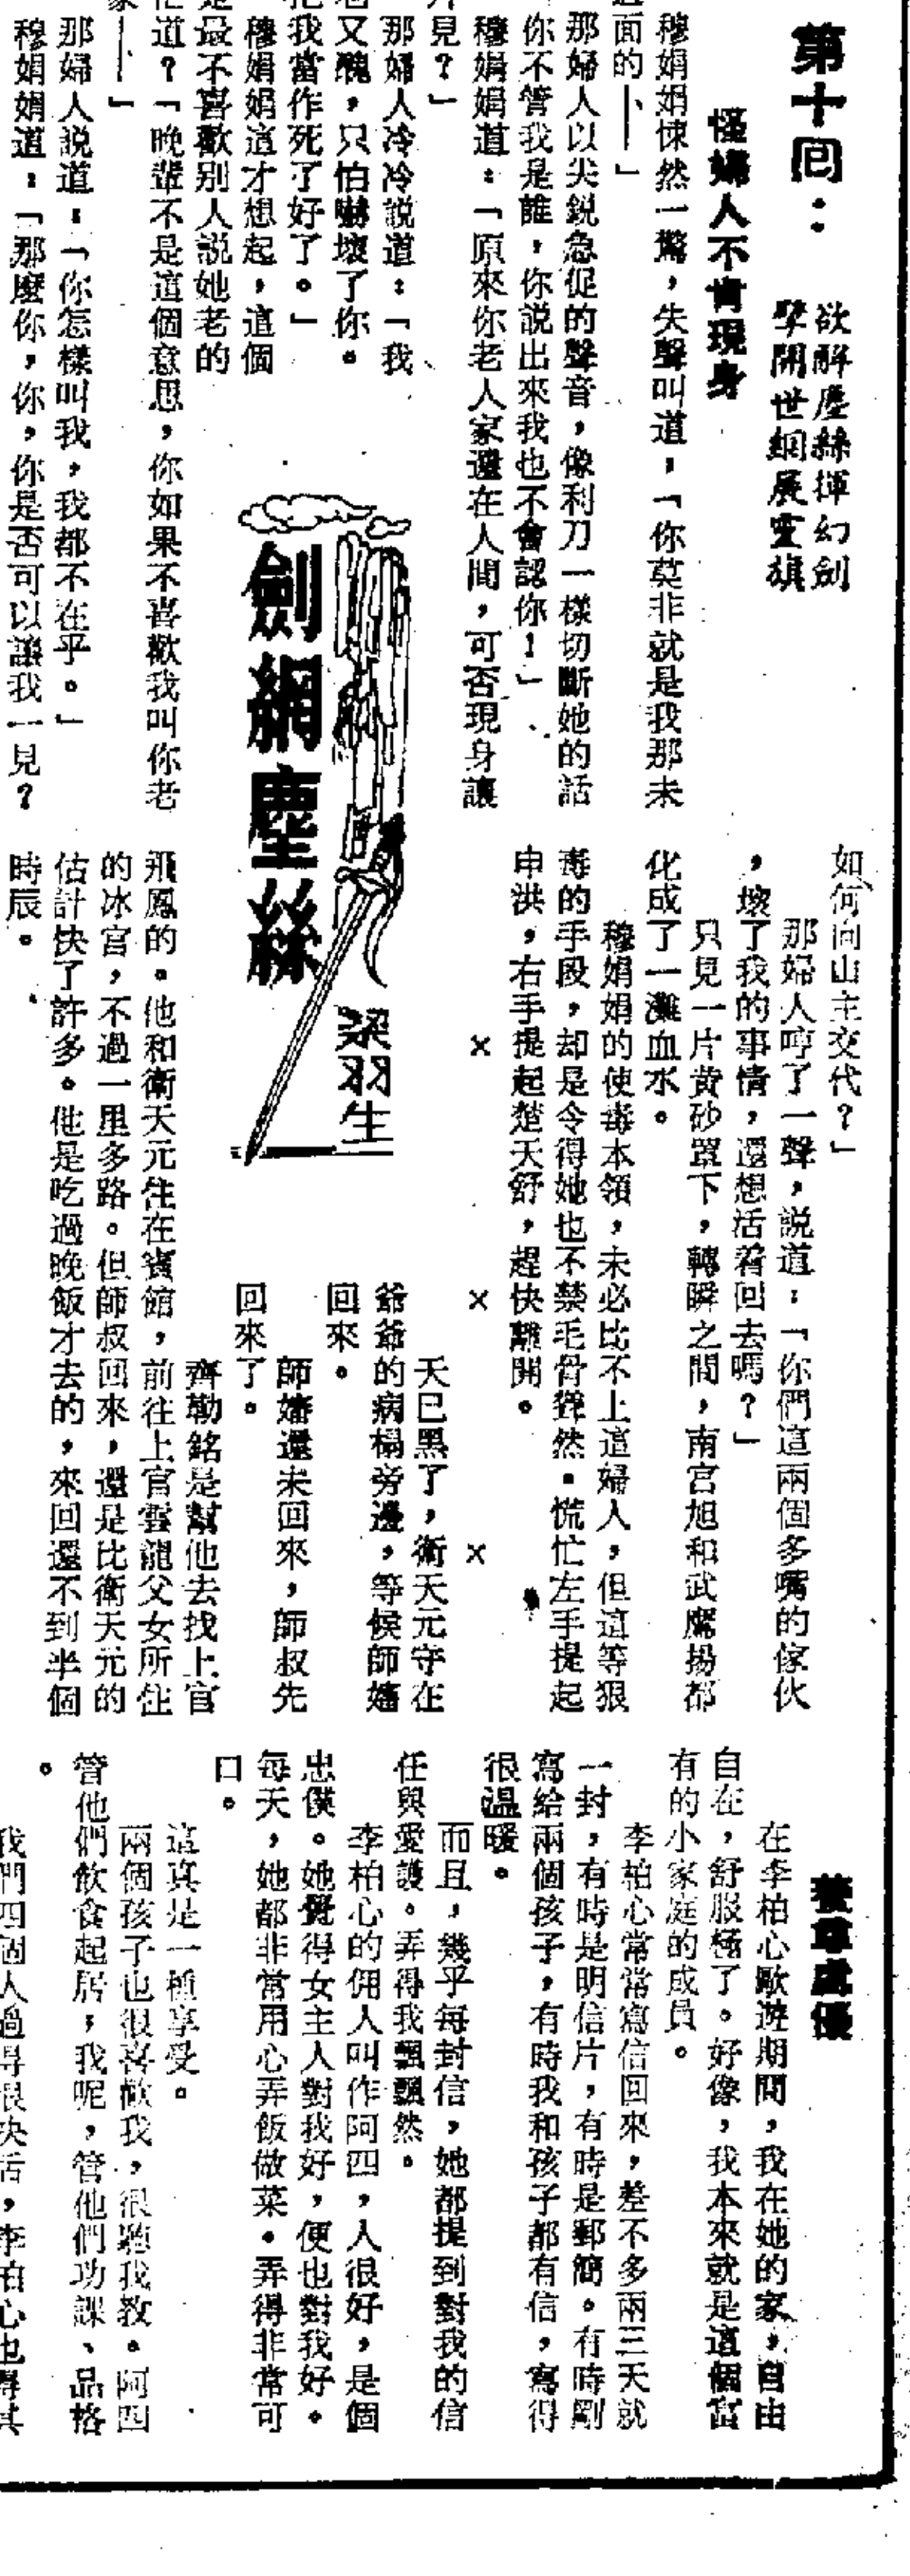 第十回：
欲解塵絲揮幻劍
擘開世網展靈旗
怪婦人不肯現身
穆娟娟悚然一驚，失聲叫道，「你莫非就是我那未
面的——」
那婦人以尖銳急促的聲音，像利刀一樣切斷她的話
你不管我是誰，你說出來我也不會認你！」
穆娟娟道：「原來你老人家還在人間，可否現身讓
見？」
那婦人冷冷說道：「我
又醜，只怕嚇壞了你。
我當作死了好了。」
穆娟娟這才想起，這個
最不喜歡別人說她老的
道？「晚輩不是這個意思，你如果不喜歡我叫你老
——」
那婦人說道：「你怎樣叫我，我都不在乎。」
穆娟娟道：「那麼你，你，你是否可以讓我一見？
劍網塵絲
梁羽生
如何向山主交代？」
那婦人哼了一聲，說道：「你們這兩個多嘴的傢伙
，壞了我的事情，還想活着回去嗎？」
只見一片黃砂罩下，轉瞬之間，南宮旭和武鷹揚都
化成了一灘血水。
穆娟娟的使毒本領，未必比不上這婦人，但這等狠
毒的手段，却是令得她也不禁毛骨聳然。慌忙左手提起
申洪，右手提起楚天舒，趕快離開。
× × ×
天已黑了，衛天元守在
爺爺的病榻旁邊，等候師嬸
回來。
師嬸還未回來，師叔先
回來了。
齊勒銘是幫他去找上官
飛鳳的。他和衛天元住在賓館，前往上官雲龍父女所住
的冰宮，不過一里多路。但師叔回來，還是比衛天元的
估計快了許多。他是吃過晚飯才去的，來回還不到半個
時辰。
養尊處優
在李柏心歐遊期間，我在她的家，自由
自在，舒服極了。好像，我本來就是這個富
有的小家庭的成員。
李柏心常常寫信回來，差不多兩三天就
一封，有時是明信片，有時是郵簡。有時剛
寫給兩個孩子，有時我和孩子都有信，寫得
很溫暖。
而且，幾乎每封信，她都提到對我的信
任與愛護。弄得我飄飄然。
李柏心的佣人叫作阿四，人很好，是個
忠僕。她覺得女主人對我好，便也對我好。
每天，她都非常用心弄飯做菜。弄得非常可
口。
這真是一種享受。
兩個孩子也很喜歡我，很聽我教。阿四
管他們飲食起居，我呢，管他們功課、品格
。
我們四個人過得很快活，李柏心也